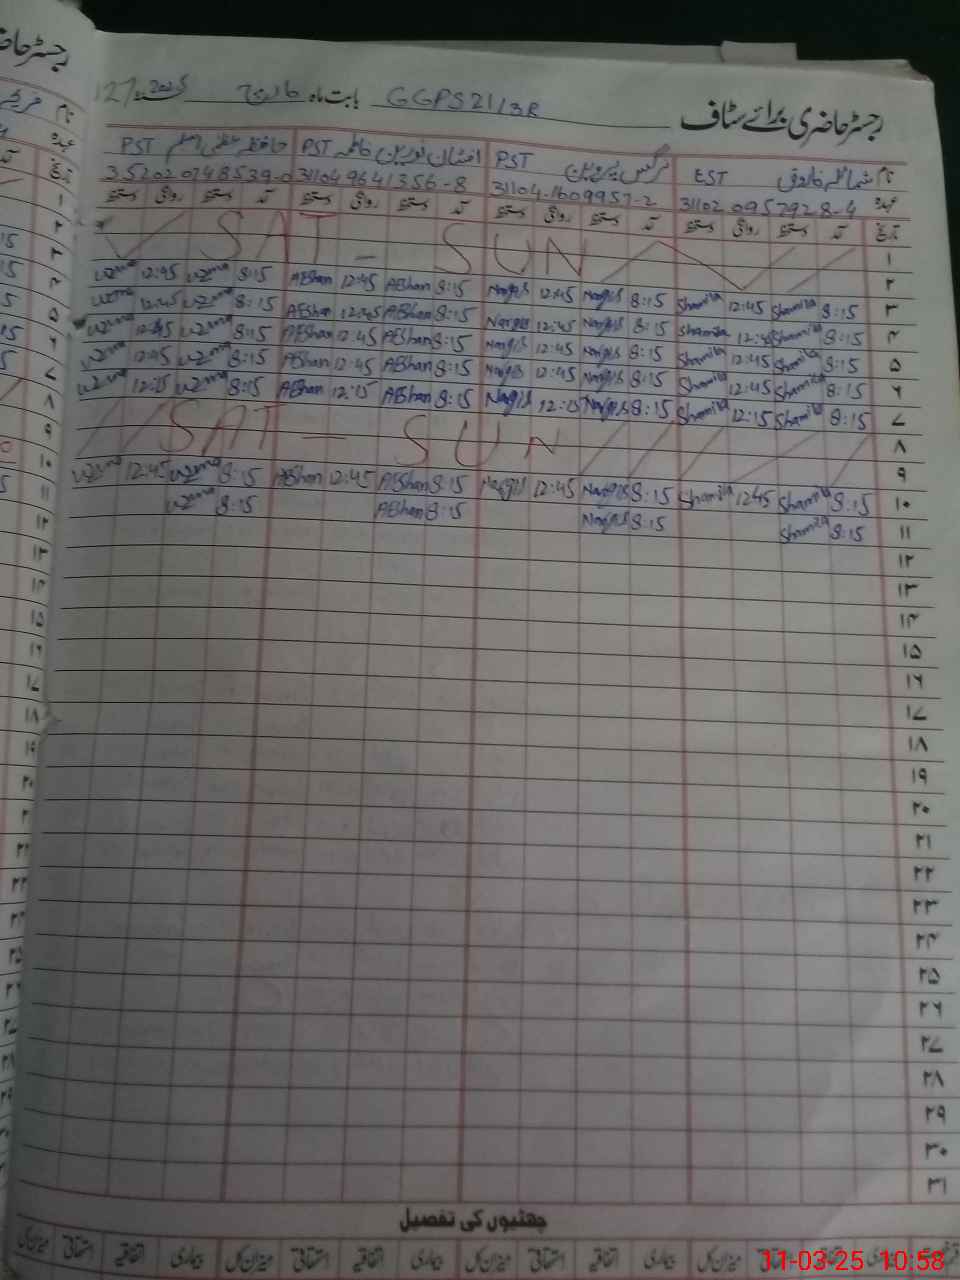 رجسٹر حاضری برائے سٹاف GGPS 21/3R بابت ماہ مارچ 2025
نام شمائلہ فاروق EST نرگس پروین PST افشاں نورین فاطمہ PST حافظہ عظمیٰ اسلم PST
عہدہ 31102 0957928-4 31104-1609957-2 31104 9641356-8 35202 0748539-0
تاریخ آمد دستخط روانگی دستخط آمد دستخط روانگی دستخط آمد دستخط روانگی دستخط آمد دستخط روانگی دستخط
۱ SAT - SUN
۲
۳ 8:15 Shamila 12:45 Shamila 8:15 Nargis 12:45 Nargis 8:15 AFShan 12:45 AFShan 8:15 uzma 12:45 uzma
۴ 8:15 Shamila 12:45 Shamila 8:15 Nargis 12:45 Nargis 8:15 AFShan 12:45 AFShan 8:15 uzma 12:45 uzma
۵ 8:15 Shamila 12:45 Shamila 8:15 Nargis 12:45 Nargis 8:15 AFShan 12:45 AFShan 8:15 uzma 12:45 uzma
۶ 8:15 Shamila 12:45 Shamila 8:15 Nargis 12:45 Nargis 8:15 AFShan 12:45 AFShan 8:15 uzma 12:45 uzma
۷ 8:15 Shamila 12:15 Shamila 8:15 Nargis 12:15 Nargis 8:15 AFShan 12:15 AFShan 8:15 uzma 12:15 uzma
۸ SAT - SUN
۹
۱۰ 8:15 Shamila 12:45 Shamila 8:15 Nargis 12:45 Nargis 8:15 AFShan 12:45 AFShan 8:15 uzma 12:45 uzma
۱۱ 8:15 Shamila 8:15 Nargis 8:15 AFShan 8:15 uzma
۱۲
۱۳
۱۴
۱۵
۱۶
۱۷
۱۸
۱۹
۲۰
۲۱
۲۲
۲۳
۲۴
۲۵
۲۶
۲۷
۲۸
۲۹
۳۰
۳۱
چھٹیوں کی تفصیل
بیماری اتفاقیہ استحقاقی میزان کل بیماری اتفاقیہ استحقاقی میزان کل بیماری اتفاقیہ استحقاقی میزان کل
11-03-25 10:58